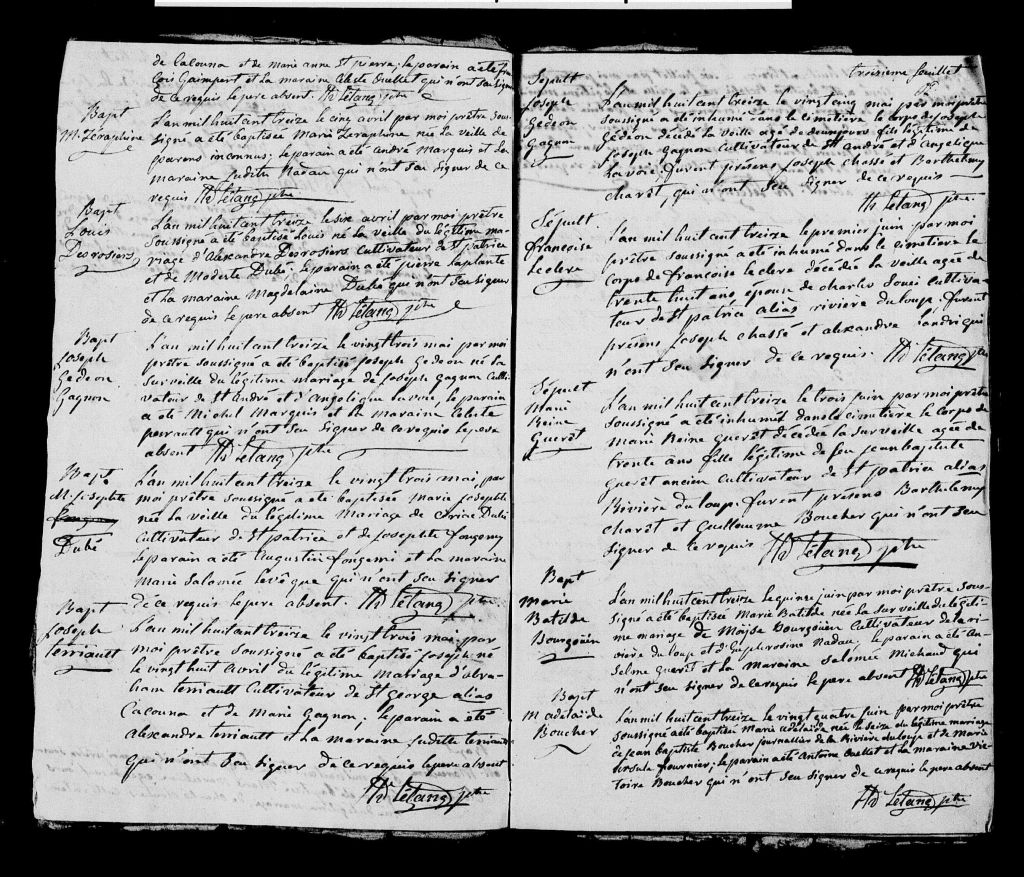 de Cacouna et de marie anne St pierre; le parain a été fran
cois Guimpert et la maraine Celeste Ouellet qui n'ont su signer
de ce requis le pere absent. Th Létang ptre
Bapt
M. Zeraphine
L'an mil huit cent treize le cinq avril par moi prêtre sous-
signé a été baptisée Marie Zeraphine née la veille de
parens inconnus; le parain a été andré Marquis et la
maraine Judith Nadau qui n'ont seu signer de ce
requis Th Létang ptre
Bapt
Louis
Desrosiers
L'an mil huit cent treize le six avril par moi prêtre
soussigné a été baptisé Louis né la veille du légitime ma-
riage d'Alexandre Desrosiers Cultivateur de St patrice
et de Modeste Dubé. le parain a été pierre Laplante
et la maraine Magdelaine Dubé qui n'ont seu signer
de ce requis le pere absent Th Létang ptre
Bapt
Joseph
Gedeon
Gagnon
L'an mil huit cent treize le vingt trois mai par moi
prêtre soussigné a été baptisé Joseph Gedeon né la
surveille du légitime mariage de Joseph Gagnon Culti-
vateur de St André et d'Angelique Lavoie, le parain
a été Michel Marquis et la maraine Celeste
perrault qui n'ont seu signer de ce requis le pere
absent Th Létang ptre
Bapt
M. josephte
Dubé
L'an mil huit cent treize le vingt trois mai, par
moi prêtre soussigné a été baptisée marie josephte
née la veille du légitime mariage de Dubé
Cultivateur de St patrice et de Josephte fongemy
le parain a été Augustin fongemi et la maraine
Marie Salomée Levêque qui n'ont seu signer
de ce requis le pere absent. Th Létang ptre
Bapt
Joseph
terriault
L'an mil huit cent treize le vingt trois mai, par
moi prêtre soussigné a été baptisé Joseph né
le vingt huit avril du légitime mariage d'abra-
ham terriault Cultivateur de St George alias
Cacouna et de Marie Gagnon; le parain a été
Alexandre terriault et la maraine Judithe terriault
qui n'ont seu signer de ce requis le pere absent
Th Létang ptre
treizieme feuillet
Sepult
Joseph
Gedeon
Gagnon
L'an mil huit cent treize le vingt cinq mai par moi prêtre
soussigné a été inhumé dans le cimetiere le corps de Joseph
Gedeon décédé la veille agé de jours fils légitime de
Joseph Gagnon Cultivateur de St André et d'Angelique
Lavoie. furent présens Joseph chassé et Barthelemy
charêt, qui n'ont seu signer de ce requis
Th Létang ptre.
Sépult
françoise
Leclerc
L'an mil huit cent treize le premier juin par moi
prêtre soussigné a été inhumé dans le cimetiere le
corps de francoise leclerc décédée la veille agée de
trente huit ans, épouse de charles Souci Cultiva-
teur de St patrice alias riviere du loup. furent
présens Joseph chassé et alexandre Landri qui
n'ont seu signer de ce requis. Th Létang ptre
Sépult
Marie
Reine
Guerêt
L'an mil huit cent treize le trois juin par moi prêtre
soussigné a été inhumé dans le cimetiere le corps de
Marie Reine Guerêt décédée la surveille agée de
trente ans fille légitime de feu jean baptiste
guerêt ancien cultivateur de St patrice alias
Riviere du loup. furent présens Barthelemy
charêt et Guillaume Boucher qui n'ont seu
signer de ce requis Th Létang ptre
Bapt
Marie
Batilde
Bourgoüen
L'an mil huit cent treize le quinze juin par moi prêtre sous-
signé a été baptisée Marie Batilde née la surveille du légiti-
me mariage de Moÿse Bourgoüen Cultivateur de la ri-
viere du loup et d'Euphrosine Nadau. le parain a été An-
selme guerêt et la maraine Salomée Michaud qui
n'ont seu signer de ce requis le pere absent Th Létang ptre
Bapt
M adelaïde
Boucher
L'an mil huit cent treize le vingt quatre juin par moi prêtre
soussigné a été baptisée Marie adelaïde née le seize du légitime mariage
de jean baptiste Boucher journallier de la Riviere du loup et de Marie
ursule fournier; le parain a été Antoine Ouellet et la maraine Vic-
toire Boucher qui n'ont seu signer de ce requis le pere absent
Th Létang ptre